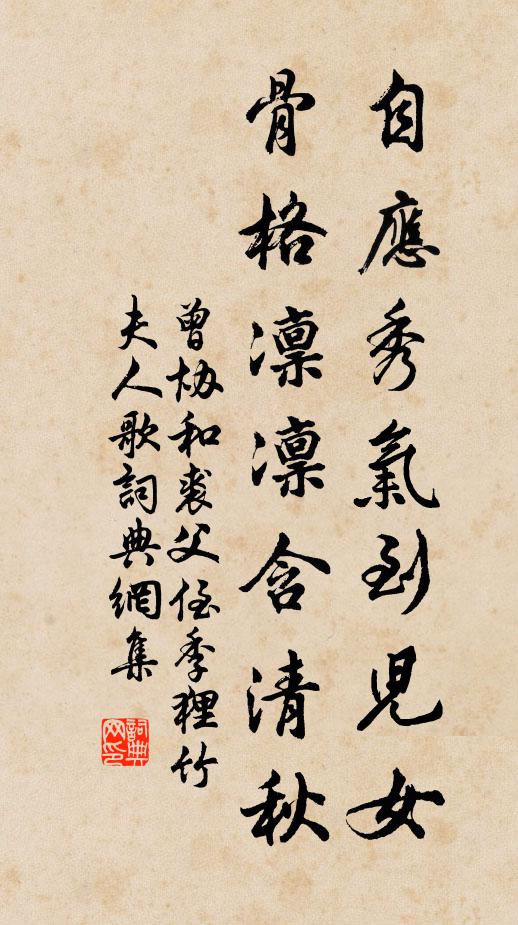 自應秀氣到児女
骨格凛凛含清秋
曾協和裘父侄季狸竹
夫人歌詞典網集
詞典
网印